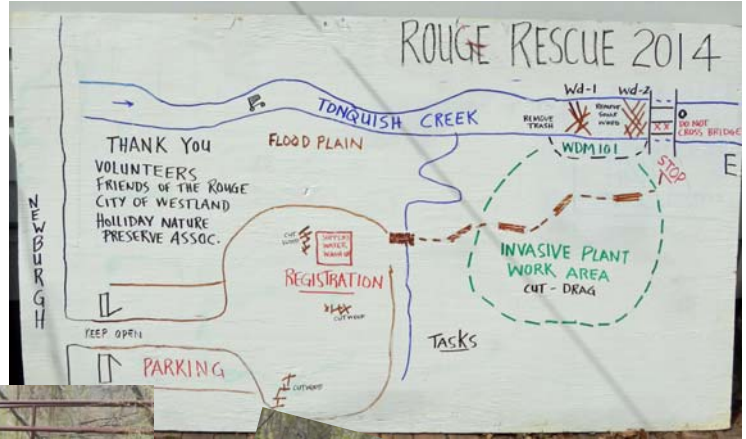 ROUGE RESCUE 2014
Wd-1 Wd-2
TONQUISH CREEK
REMOVE
TRASH
REMOVE
SOME
WOOD
X X
DO NOT
CROSS BRIDGE
WDM101
STOP
E
THANK YOU
VOLUNTEERS
FRIENDS OF THE ROUGE
CITY OF WESTLAND
HOLLIDAY NATURE
PRESERVE ASSOC.
FLOOD PLAIN
NEWBURGH
CUT
WOOD
SUPPLIES
WATER
REGISTRATION
CUT WOOD
INVASIVE PLANT
WORK AREA
CUT - DRAG
KEEP OPEN
PARKING
CUT WOOD
TASKS